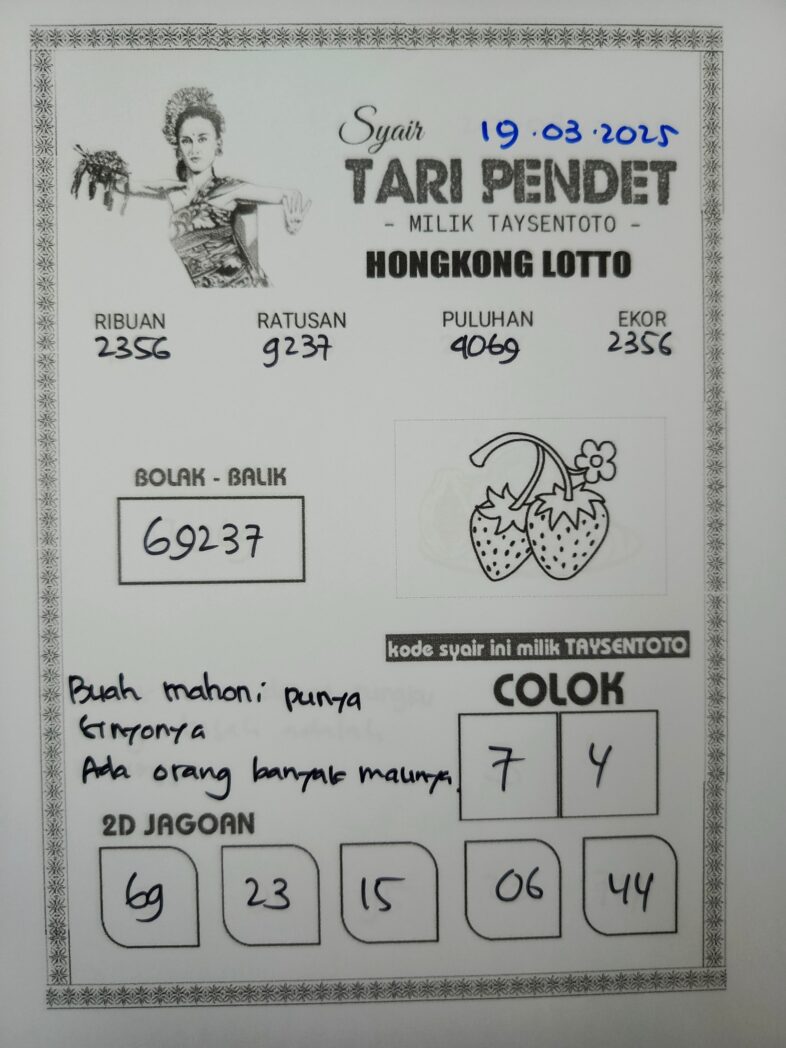 Syair 19.03.2025
TARI PENDET
- MILIK TAYSENTOTO -
HONGKONG LOTTO
RIBUAN RATUSAN PULUHAN EKOR
2356 9237 4069 2356
BOLAK - BALIK
69237
kode syair ini milik TAYSENTOTO
Buah mahoni punya
Ada orang banyak maunya.
COLOK
7 4
2D JAGOAN
69 23 15 06 44